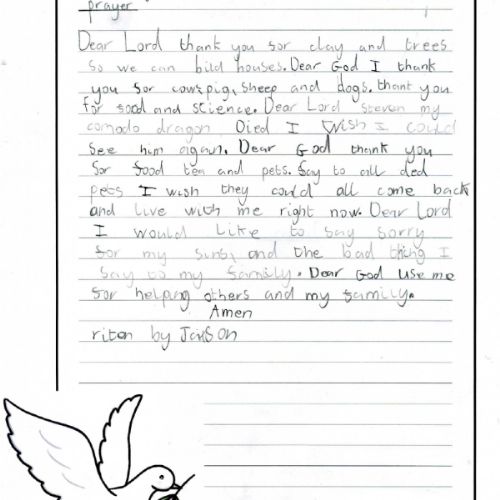 prayer
Dear Lord thank you for clay and trees
so we can bild houses. Dear God I thank
you for cows, pig, sheep and dogs. thank you
for food and science. Dear Lord Steven my
comodo dragon Died I wish I could
see him agun. Dear God thank you
for food tea and pets. Say to all ded
pets I wish they could all come back
and live with me right now. Dear Lord
I would like to say sorry
for my sins, and the bad thing I
say to my family. Dear God use me
for helping others and my family.
Amen
riten by